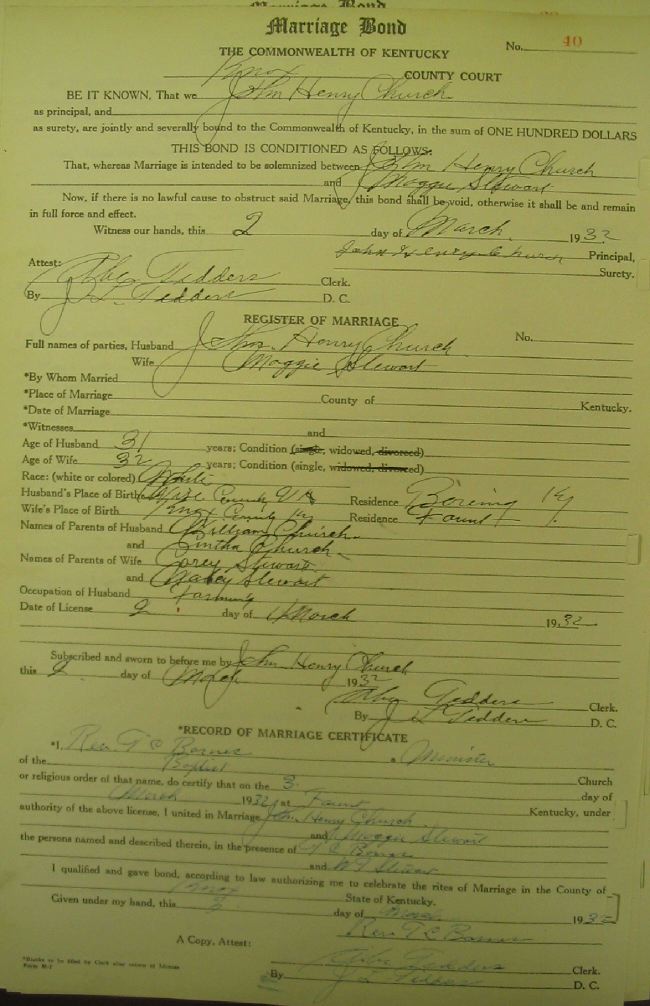 Marriage Bond
No. 40
THE COMMONWEALTH OF KENTUCKY
Knox COUNTY COURT
BE IT KNOWN, That we John Henry Church
as principal, and
as surety, are jointly and severally bound to the Commonwealth of Kentucky, in the sum of ONE HUNDRED DOLLARS
THIS BOND IS CONDITIONED AS FOLLOWS:
That, whereas Marriage is intended to be solemnized between John Henry Church
and Maggie Stewart
Now, if there is no lawful cause to obstruct said Marriage, this bond shall be void, otherwise it shall be and remain
in full force and effect.
Witness our hands, this 2 day of March 1932
John Henry Church Principal,
Surety.
Attest:
Abe Tedders Clerk.
By J L Tedders D. C.
REGISTER OF MARRIAGE
No.
Full names of parties, Husband Jhn. Henry Church
Wife Maggie Stewart
*By Whom Married
*Place of Marriage County of Kentucky.
*Date of Marriage
*Witnesses and
Age of Husband 31 years; Condition (single, widowed, divorced)
Age of Wife 32 years; Condition (single, widowed, divorced)
Race: (white or colored) White
Husband's Place of Birth Wise County Va Residence Boreing Ky
Wife's Place of Birth Knox County Ky Residence Fount
Names of Parents of Husband William Church
and Church
Names of Parents of Wife Corey Stewart
and Nancy Stewart
Occupation of Husband Farming
Date of License 2 day of March 1932
Subscribed and sworn to before me by John Henry Church
this 2 day of March 1932
Abe Tedders Clerk.
By J L Tedders D. C.
*RECORD OF MARRIAGE CERTIFICATE
*I, Rev. T C Barnes a Minister
of the Baptist Church
or religious order of that name, do certify that on the 3 day of
March 1932 at Fount Kentucky, under
authority of the above license, I united in Marriage Jhn. Henry Church
and Maggie Stewart
the persons named and described therein, in the presence of T C Barnes
and
I qualified and gave bond, according to law authorizing me to celebrate the rites of Marriage in the County of
Knox State of Kentucky.
Given under my hand, this 3 day of March 1932
Rev. T C Barnes
A Copy, Attest:
Abe Tedders Clerk.
By J L Tedders D. C.
*Blanks to be filled by Clerk after return of License